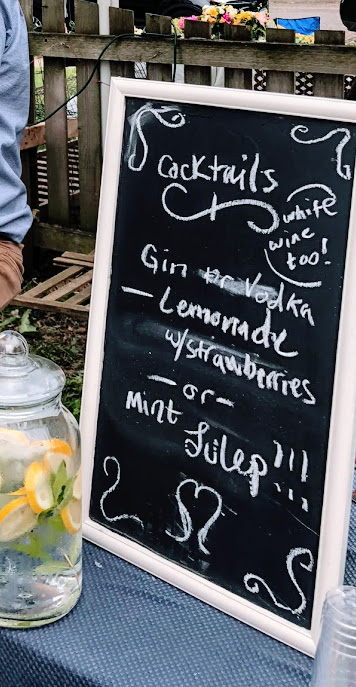 Cocktails
white
wine
too!
Gin or Vodka
- Lemonade
w/strawberries
- or -
Mint Julep!!!